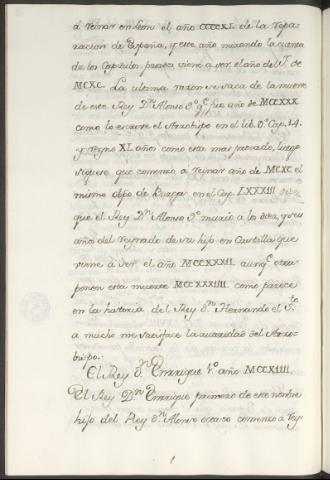 á reinar en Leon el año CCCCXL. de la repa-
racion de España, y este año mirando la cuenta
de los Capitulos pasados viene à ser el año del Sr. de
MCXC. La ultima razon se saca de la muerte
de este Rey Dn. Alonso 9º. q.e fue año de MCCXXX
como lo escrive el Arzobispo en el lib. 9º. Cap. 14.
y reyno XL años como esta mas provado, luego
siguese que comenzo a reynar año de MCXC el
mismo obpo de Burgos en el Cap. LXXXIII dice
que el Rey Dn. Alonso 9º. murió a los diez, y seis
años del reynado de su hijo en Castilla que
viene à ser el año MCCXXXII aunq.e otros
ponen esta muerte MCCXXXIIII. como parece
en la historia del Rey dn. Hernando el S.to
a mucho me satisface la autoridad del Arzo-
bispo.
El Rey dn. Enrrique 1º. año MCCXIIII.
El Rey Dn. Enrrique primero de este nombre
hijo del Rey dn. Alonso octavo comenzo a rey-